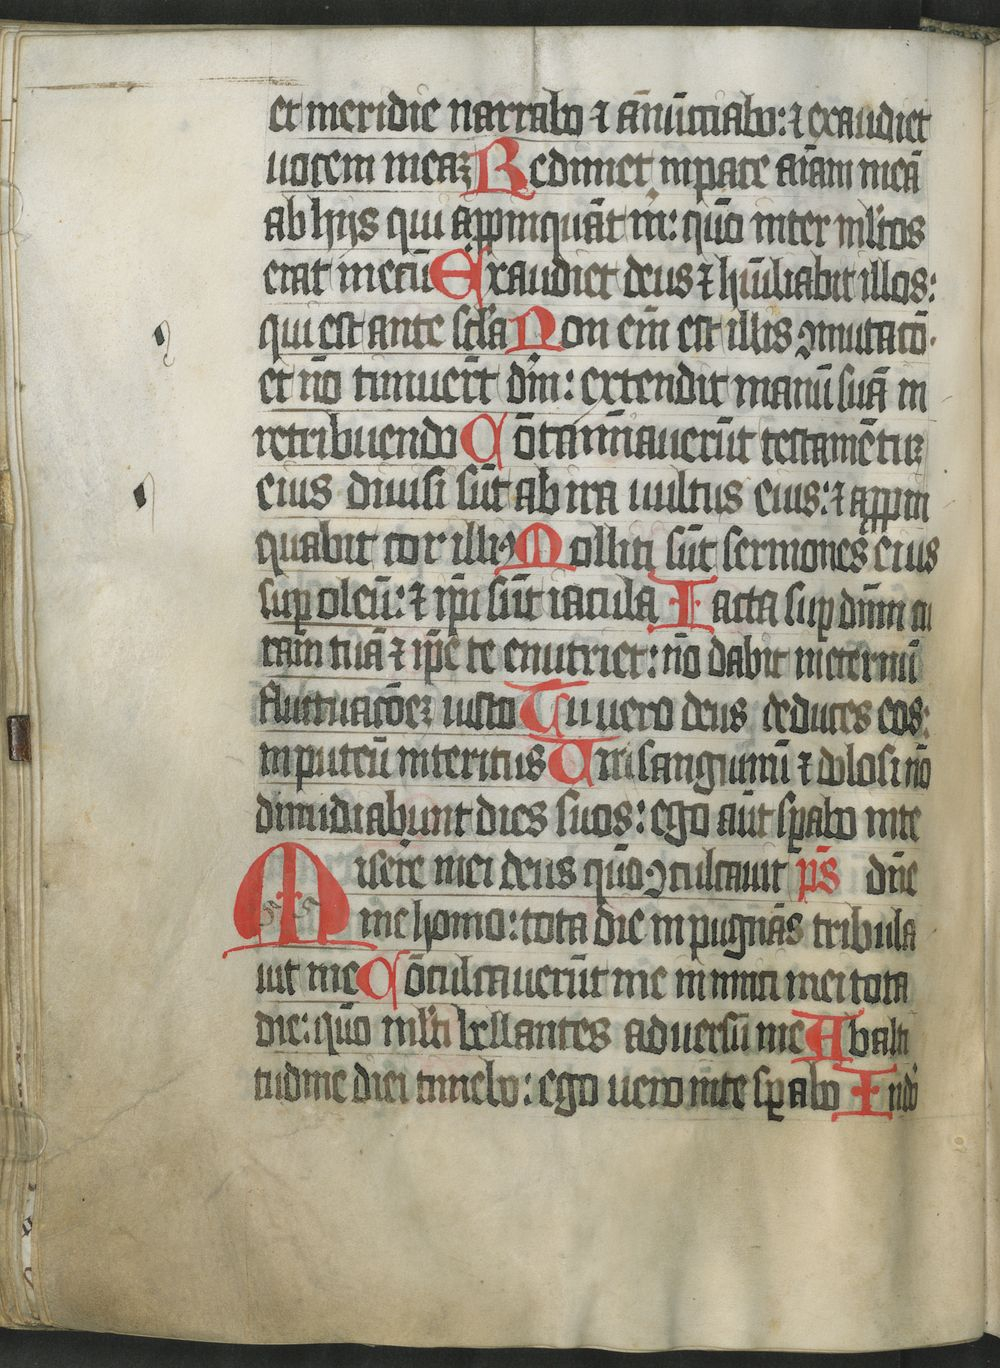 et meridie narrabo ⁊ ānūctiabo: ⁊ exaudiet
uocem meaꝫ Redimet in pace aīam meā
ab hijs qui appinquāt m̄: qūo inter ml̄tos
erat mecū Exaudiet deus ⁊ hūiliabit illos:
qui est ante scl̄a Non eīm est illis ꝯmutatō·
et nō timuer̄t dm̄: extendit manū suā in
retribuendo Cōtamīnauerūt testamētuꝫ
eius diuisi sūt ab ira uultus eius: ⁊ appin
quabit cor illiꝰ Molliti sūt sermones eius
suꝑ oleū: ⁊ ip̄i sūt iacula Iacta suꝑ dn̄m cu
ram tuā ⁊ ip̄e te enutriet: nō dabit in eternū
fluctuacōeꝫ iusto Tu uero deus deduces eos:
in puteū interitus Uiri sanguinū ⁊ dolosi nō
dimidiabunt dies suos: ego aūt sꝑabo in te
Misere mei deus qūo ꝯculcauit p̄s dn̄e
me homo: tota die inpugnās tribula
uit me Cōculcauerūt me inimici mei tota
die: qūo ml̄ti bellantes aduersū me Ab alti
tudine diei timebo: ego uero īn te sꝑabo In dō